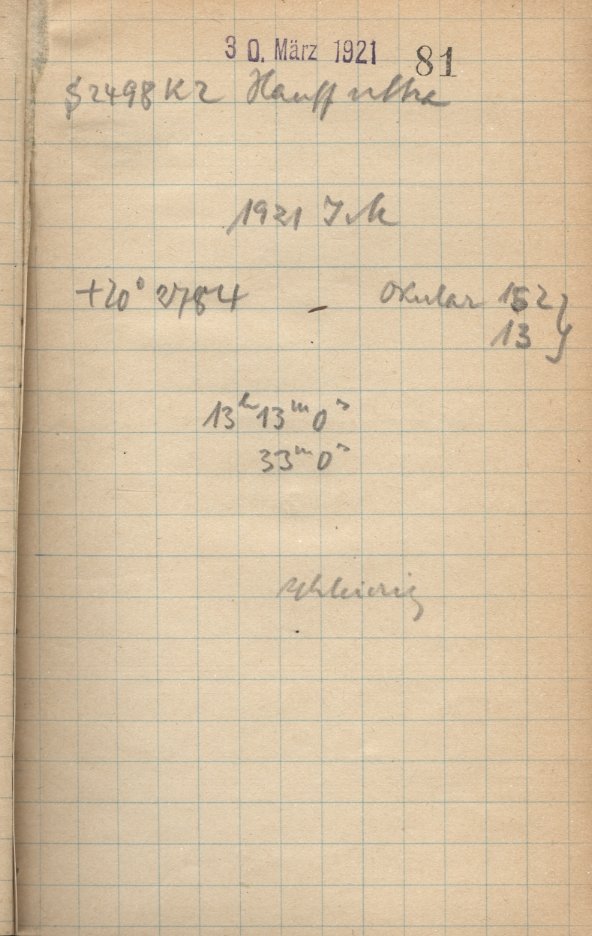 30. März 1921 81
2498 K2 Hauff ultra
1921
+20° 2784 - Okular 152
13 y
13h 13m 0s
33m 0s
schleierig